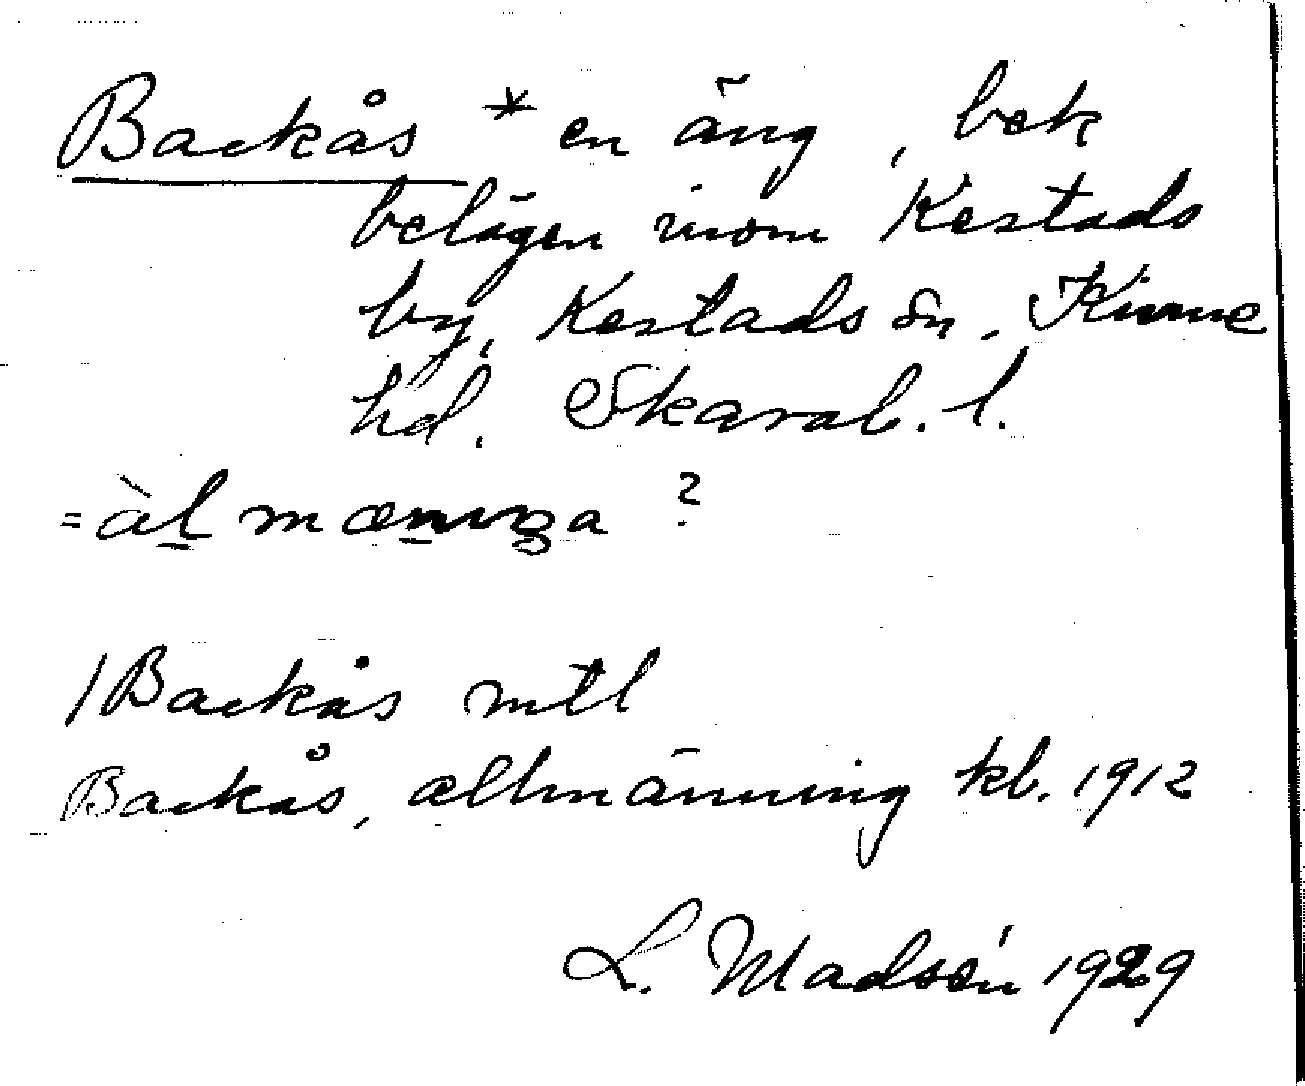 Backås * en äng, bek
belägen inom Kestads
by, Kestads sn. Kinne
hd. Skarab. l.
= àl mæninga ?
/Backås mtl
Backås, allmänning kb. 1912
L. Madsén 1929